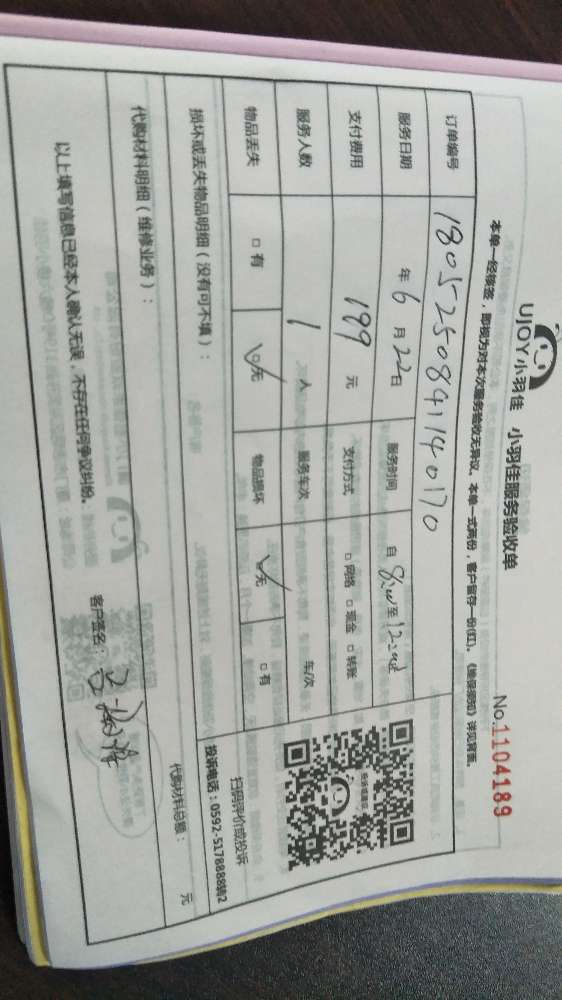 UJOY小羽佳 小羽佳服务验收单
No.1104189
本单一经核签，即视为对本次服务验收无异议，本单一式两份，客户留存一份(红)。《地保须知》详见背面。
订单编号 1805250841140170
服务日期 年 6 月 22 日 服务时间 自 8:00 至 12:00
支付费用 199 元 支付方式 □ 网络 □ 现金 □ 转账
服务人数 1 人 服务车次 车/次
物品丢失 □ 有 ☑ 无 物品损坏 ☑ 无 □ 有
扫码评价或投诉
投诉电话：0592-5178888转2
损坏或丢失物品明细（没有可不填）：
代购材料明细（维修业务）：
代购材料总额： 元
以上填写信息已经本人确认无误，不存在任何争议纠纷。
客户签名：